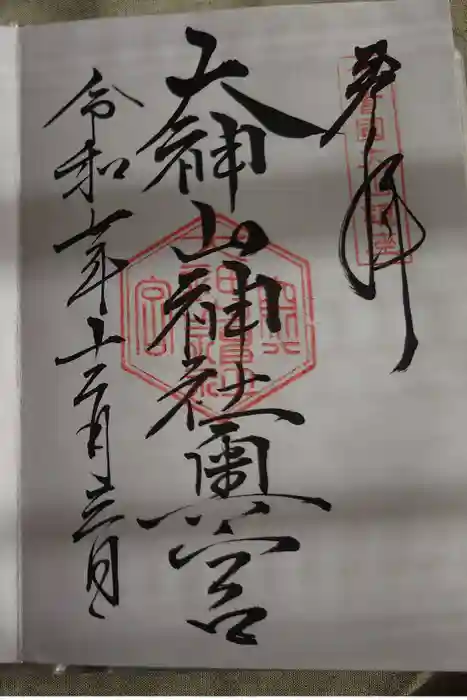 奉拝
大神山神社奥宮
令和七年十二月三日